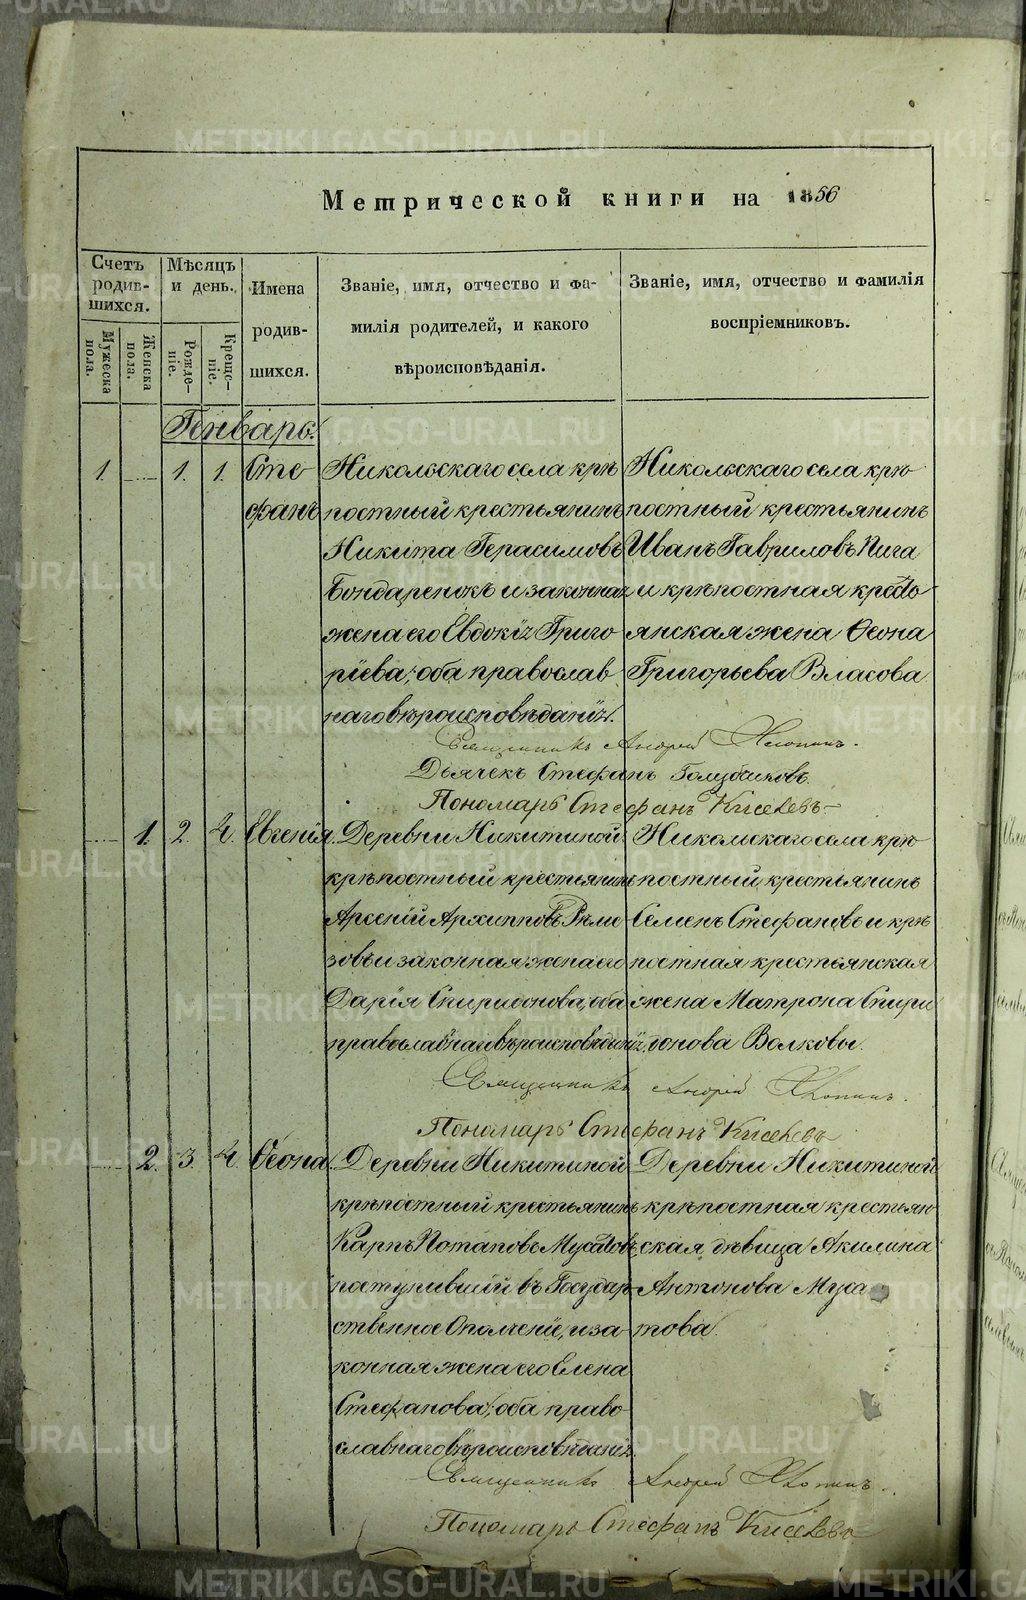 METRIKI.GASO-URAL.RU
Метрической книги на 1856
Счетъ родив- шихся.
Мужеска пола.
Женска пола.
Мѣсяцъ и день.
Рожде- ніе.
Креще- ніе.
Имена родив- шихся.
Званіе, имя, отчество и фа-
милія родителей, и какого
вѣроисповѣданія.
Званіе, имя, отчество и фамилія
воспріемниковъ.
Генварь.
1. 1. 1. Сте-
фанъ
Никольскаго села крѣ
постный крестьянинъ
Никита Герасимовъ
Бондаренокъ и законная
жена его Евдокія Григо
ріева; оба православ
наго вѣроисповѣданія.
Никольскаго села крѣ
постный крестьянинъ
Иванъ Гавриловъ Пига
и крѣпостная кресть-
янская жена Ѳеона
Григорьева Власова
Священникъ Андрей
Дьячекъ Стефанъ
Пономарь Стефанъ Киселевъ
1. 2. 4. Евгенія.
Деревни Никитиной
крѣпостный крестьянинъ
Арсеній Архипповъ
зовъ и законная жена его
Дарія Спиридонова, оба
православнаго вѣроисповѣданія.
Никольскаго села крѣ
постный крестьянинъ
Семенъ Стефановъ и крѣ
постная крестьянская
жена Матрона Спири
донова Волковы.
Священникъ Андрей
Пономарь Стефанъ Киселевъ
2. 3. 4. Ѳеона.
Деревни Никитиной
крѣпостный крестьянинъ
Карпъ Потаповъ Мусатовъ
поступившій въ Государ
ственное Ополченіе, и за-
конная жена его Елена
Стефанова; оба право-
славнаго вѣроисповѣданія.
Деревни Никитиной
крѣпостная крестьян
ская дѣвица Акилина
Антонова Муса
това.
Священникъ Андрей
Пономарь Стефанъ Киселевъ